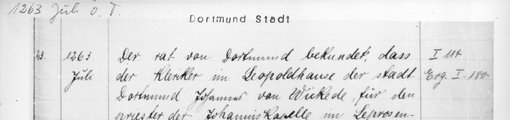 1263 Juli o. T.
Dortmund Stadt
23. 1263 Der rat von Dortmund bekundet, dass I 114
Juli der Kleriker im Leopoldhause der stadt Erg. I. 180
Dortmund Johannes von Wickede, für den
priester der Johanniskapelle im Leprosen-